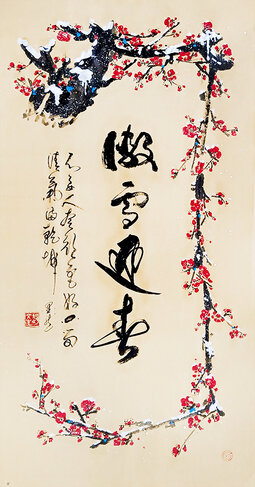 傲雪迎春
不要人夸颜色好只留
清氣滿乾坤